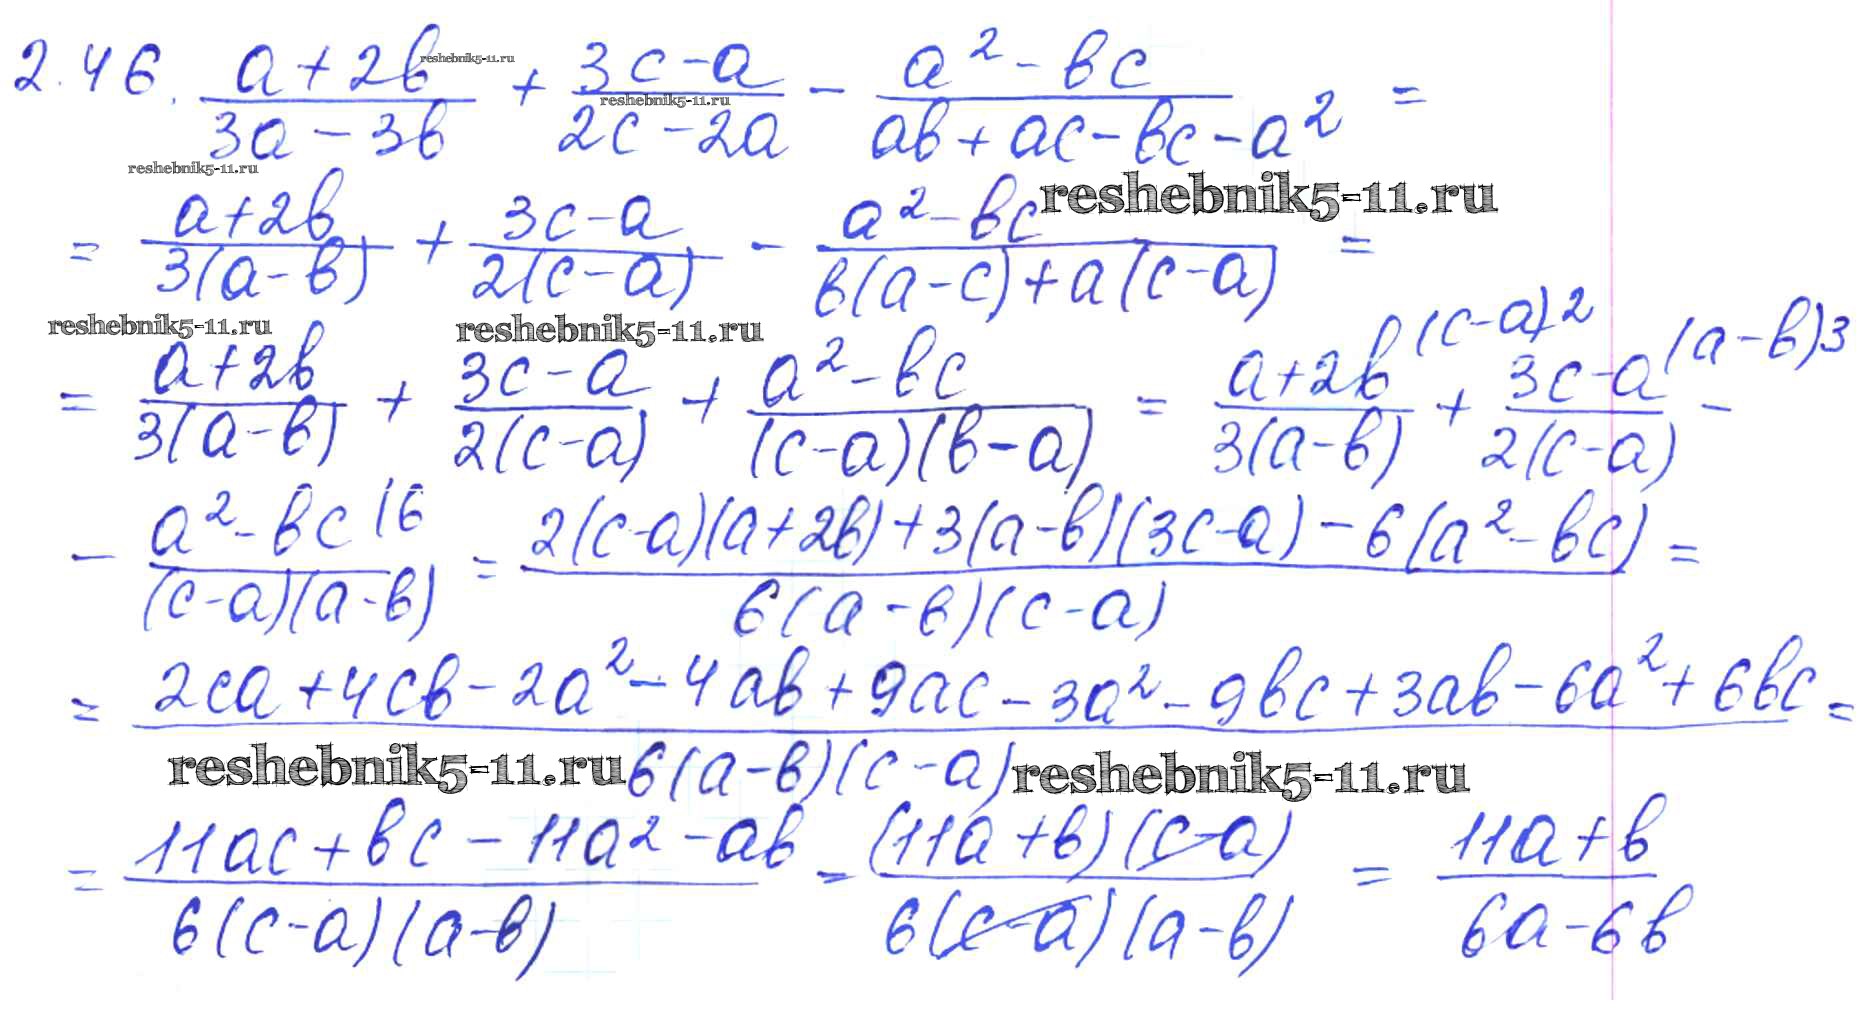 2.46. (a+2b)/(3a-3b) + (3c-a)/(2c-2a) - (a²-bc)/(ab+ac-bc-a²) =
reshebnik5-11.ru
reshebnik5-11.ru
reshebnik5-11.ru
= (a+2b)/(3(a-b)) + (3c-a)/(2(c-a)) - (a²-bc)/(b(a-c)+a(c-a)) =
reshebnik5-11.ru
reshebnik5-11.ru
reshebnik5-11.ru
= (a+2b)/(3(a-b)) + (3c-a)/(2(c-a)) + (a²-bc)/((c-a)(b-a)) = (a+2b)/(3(a-b)) (c-a)2 + (3c-a)/(2(c-a)) (a-b)3 -
- (a²-bc)/((c-a)(a-b)) (6 = (2(c-a)(a+2b)+3(a-b)(3c-a)-6(a²-bc))/(6(a-b)(c-a)) =
= (2ca+4cb-2a²-4ab+9ac-3a²-9bc+3ab-6a²+6bc)/(6(a-b)(c-a)) =
reshebnik5-11.ru
reshebnik5-11.ru
= (11ac+bc-11a²-ab)/(6(c-a)(a-b)) = ((11a+b)(c-a))/(6(c-a)(a-b)) = (11a+b)/(6a-6b)